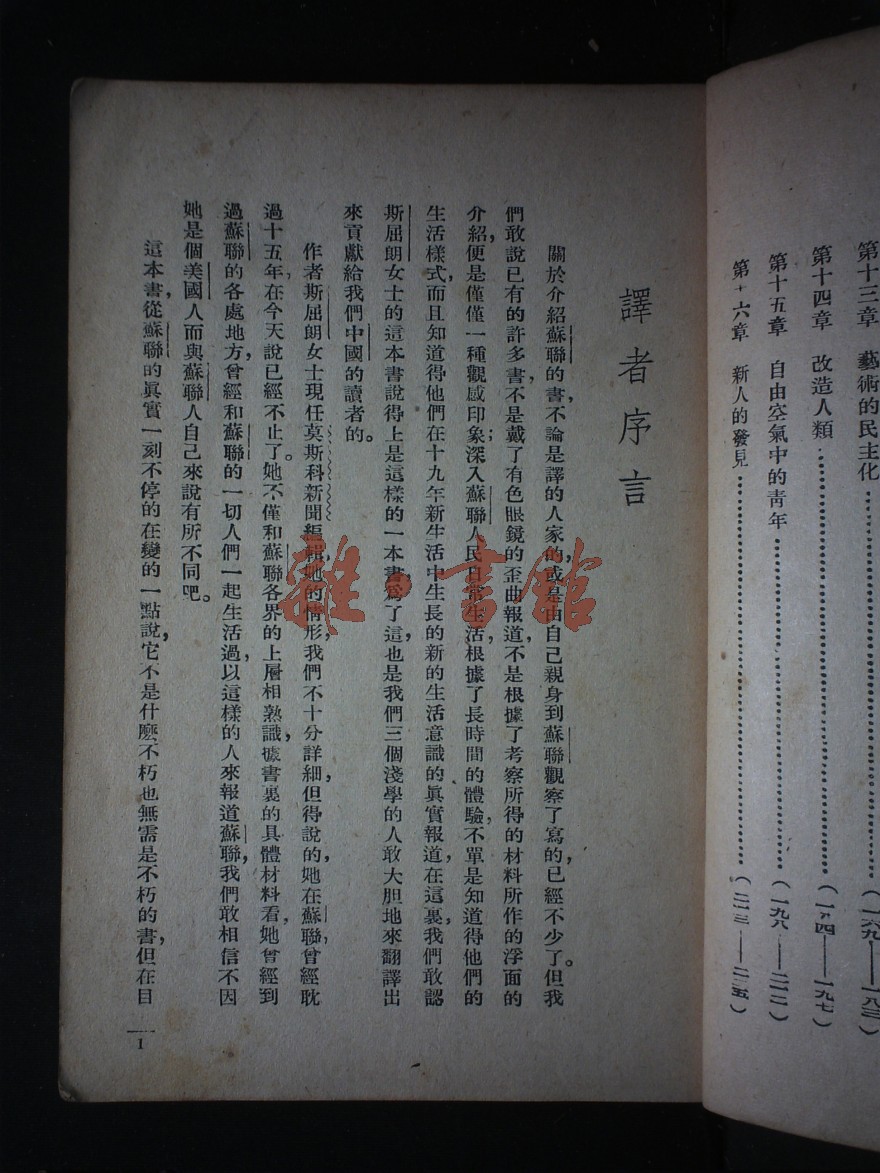 第十三章　藝術的民主化……（一六九——一八三）
第十四章　改造人類……（一八四——一九七）
第十五章　自由空氣中的青年……（一九八——二一二）
第十六章　新人的發見……（二一三——二二五）
譯者序言
關於介紹蘇聯的書，不論是譯的人家的，或是由自己親身到蘇聯觀察了寫的，已經不少了。但我
們敢說已有的許多書，不是戴了有色眼鏡的歪曲報道，不是根據了考察所得的材料所作的浮面的
介紹，便是僅僅一種觀感印象；深入蘇聯人民日常生活，根據了長時間的體驗，不單是知道得他們的
生活樣式，而且知道得他們在十九年新生活中生長的新的生活意識的眞實報道，在這裏，我們敢認
斯屈朗女士的這本書說得上是這樣的一本書，爲了這，也是我們三個淺學的人敢大胆地來翻譯出
來貢獻給我們中國的讀者的。
作者斯屈朗女士現任莫斯科新聞編輯，她的情形，我們不十分詳細，但得說的，她在蘇聯，曾經耽
過十五年，在今天說已經不止了。她不僅和蘇聯各界的上層相熟識，據書裏的具體材料看，她曾經到
過蘇聯的各處地方，曾經和蘇聯的一切人們一起生活過，以這樣的人來報道蘇聯，我們敢相信不因
她是個美國人而與蘇聯人自己來說有所不同吧。
這本書，從蘇聯的眞實一刻不停的在變的一點說，它不是什麽不朽也無需是不朽的書，但在目
1
雜·書館